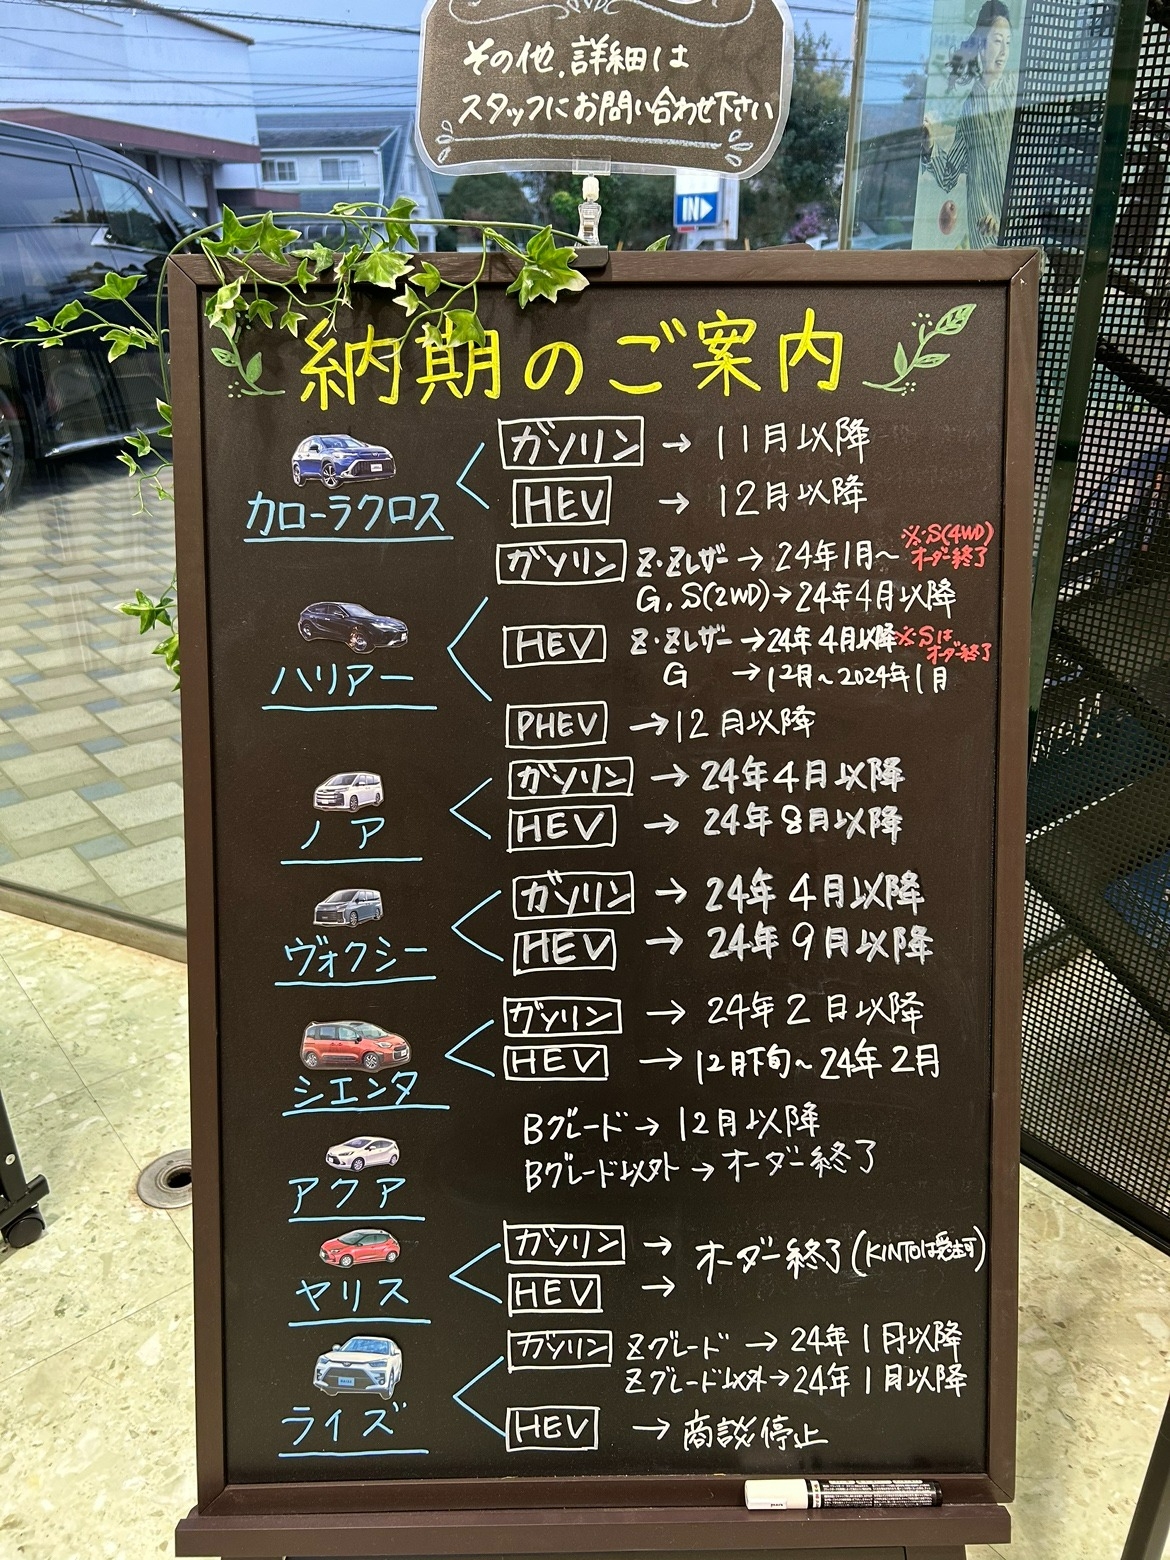 その他、詳細は
スタッフにお問い合わせ下さい
IN
納期のご案内
カローラクロス
ガソリン → 11月以降
HEV → 12月以降
ハリアー
ガソリン Z・Zレザー → 24年1月〜 ※・S(4WD)オーダー終了
G,S(2WD)→24年4月以降
HEV Z・Zレザー →24年4月以降 ※・Sはオーダー終了
G →12月〜2024年1月
PHEV →12月以降
ノア
ガソリン → 24年4月以降
HEV → 24年8月以降
ヴォクシー
ガソリン → 24年4月以降
HEV → 24年9月以降
シエンタ
ガソリン → 24年2日以降
HEV → 12月下旬〜24年2月
アクア
Bグレード → 12月以降
Bグレード以外 → オーダー終了
ヤリス
ガソリン →
HEV →
オーダー終了(KINTOは発注可)
ライズ
ガソリン Zグレード → 24年1月以降
Zグレード以外→24年1月以降
HEV → 商談停止